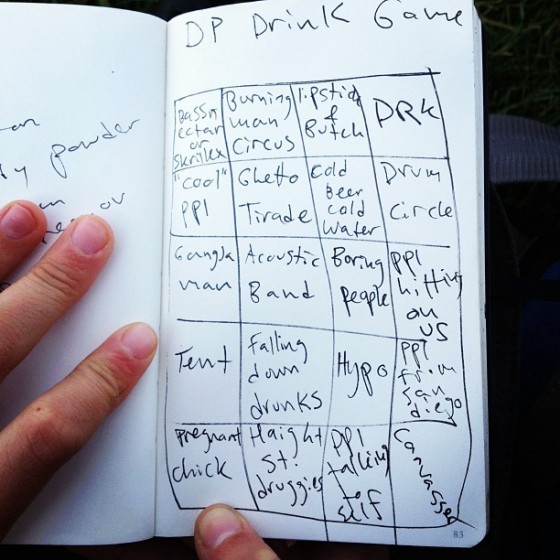 DP Drink Game
on
powder
or
Bassn
ectar
or
Skrillex
Burning
man
Circus
lipstick
&
Butch
DRK
"cool"
ppl
Ghetto
Tirade
Cold
Beer
cold
water
Drum
Circle
Gangja
man
Acoustic
Band
Boring
people
ppl
hitting
on
us
Tent
Falling
down
drunks
Hypo
ppl
from
san
diego
pregnant
chick
Haight
St.
druggies
ppl
talking
to
self
Canvasser
83